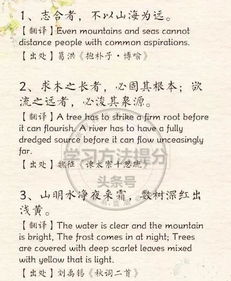 1、志合者，不以山海为远。
【翻译】Even mountains and seas cannot
distance people with common aspirations.
【出处】葛洪《抱朴子·博喻》
2、求木之长者，必固其根本；欲
流之远者，必浚其泉源。
【翻译】A tree has to strike a firm root before
it can flourish. A river has to have a fully
dredged source before it can flow unceasingly
far.
【出处】魏征《谏太宗十思疏》
3、山明水净夜来霜，数树深红出
浅黄。
【翻译】The water is clear and the mountain
is bright, The frost comes in at night; Trees
are covered with deep scarlet leaves mixed
with yellow that is light.
【出处】刘禹锡《秋词二首》
学习方法得分
头条号